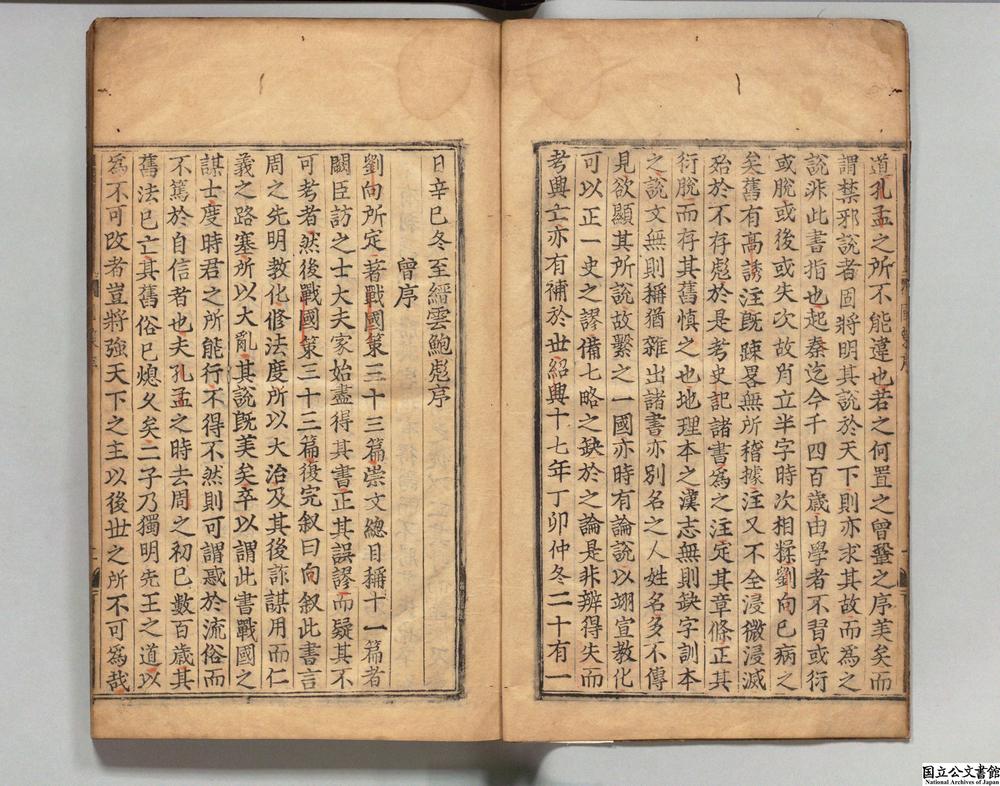 道孔孟之所不能違也若之何置之曾鞏之序美矣而
謂禁邪說者固將明其說於天下則亦求其故而為之
說非此書指也起秦迄今千四百歲由學者不習或衍
或脫或後或失次故肖立半字時次相糅劉向已病之
矣舊有高誘注既踈畧無所稽據注又不全浸微浸滅
殆於不存彪於是考史記諸書為之注定其章條正其
衍脫而存其舊慎之也地理本之漢志無則缺字訓本
之說文無則稱猶雜出諸書亦別名之人姓名多不傳
見欲顯其所說故繫之一國亦時有論說以翊宣教化
可以正一史之謬備七略之缺於之論是非辨得失而
考興亡亦有補於世紹興十七年丁卯仲冬二十有一
日辛巳冬至縉雲鮑彪序
曾序
劉向所定著戰國策三十三篇崇文總目稱十一篇者
闕臣訪之士大夫家始盡得其書正其誤謬而疑其不
可考者然後戰國策三十三篇復完叙曰向叙此書言
周之先明教化修法度所以大治及其後詐謀用而仁
義之路塞所以大亂其說既美矣卒以謂此書戰國之
謀士度時君之所能行不得不然則可謂惑於流俗而
不篤於自信者也夫孔孟之時去周之初已數百歲其
舊法已亡其舊俗已熄久矣二子乃獨明先王之道以
為不可改者豈將強天下之主以後世之所不可為哉
国立公文書館
National Archives of Japan